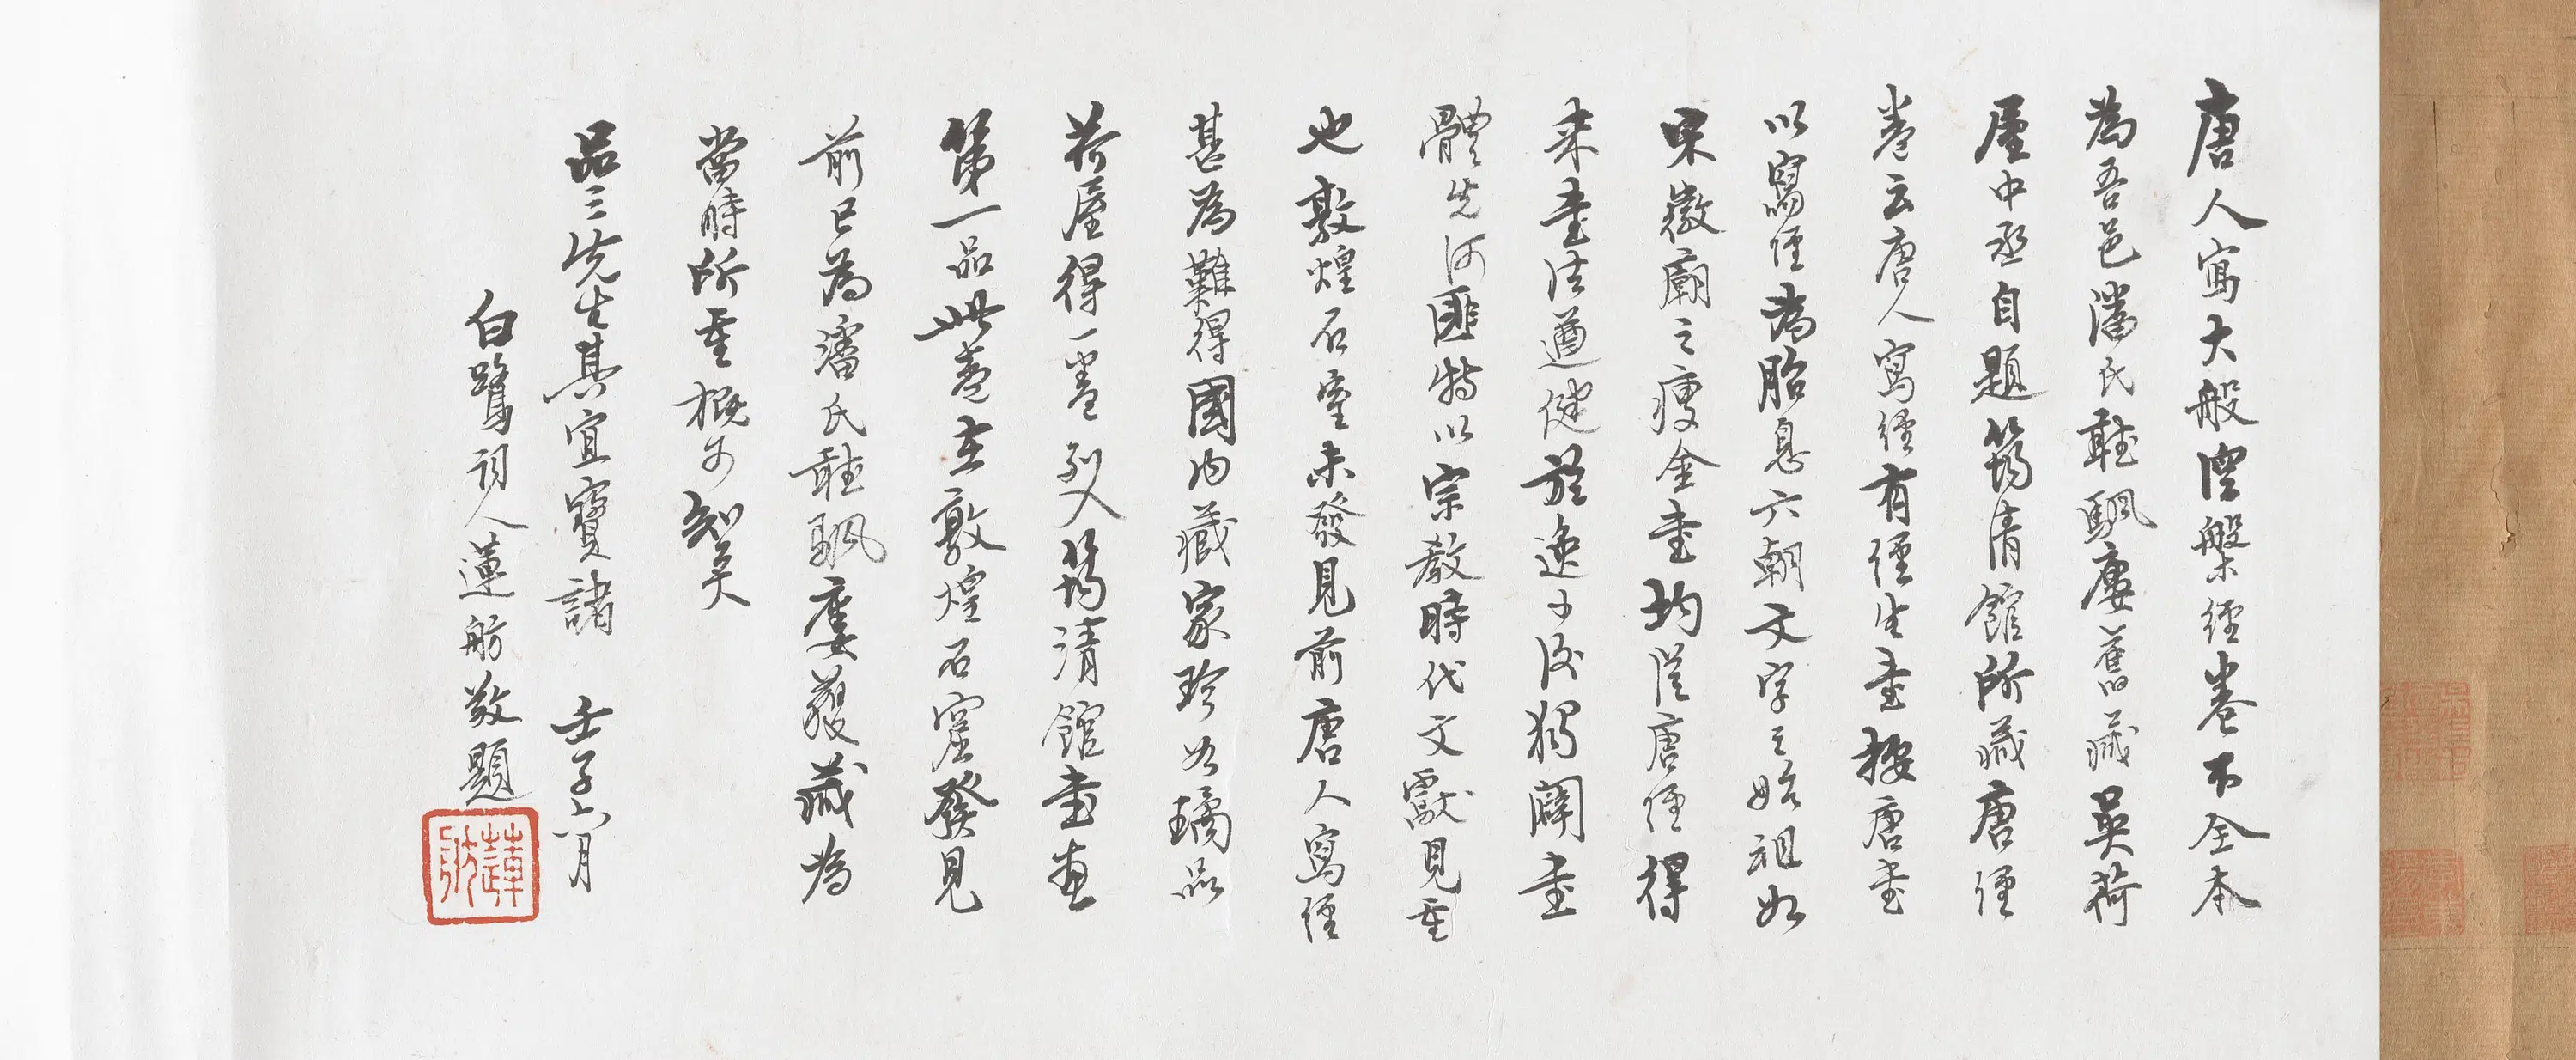 唐人寫大般涅槃經卷不全本
為吾邑潘氏聽颿廔舊藏吳荷
屋中丞自題筠清館所藏唐經
卷云唐人寫經有經生書按唐書
以寫經為胎息六朝文字之始祖如
宋徽廟之瘦金書均從唐經得
來書法遒健放逸少後獨闢書
體先河匪特以宗教時代文獻見重
也敦煌石室未發見前唐人寫經
甚為難得國內藏家珍如璚品
荷屋得一卷列入筠清館書畫
第一品此卷在敦煌石窟發見
前已為潘氏聽颿廔蔵藏為
當時所重概可知矣
品三先生其宜寶諸 壬子六月
白鷺詞人蓮舫敬題
蓮舫